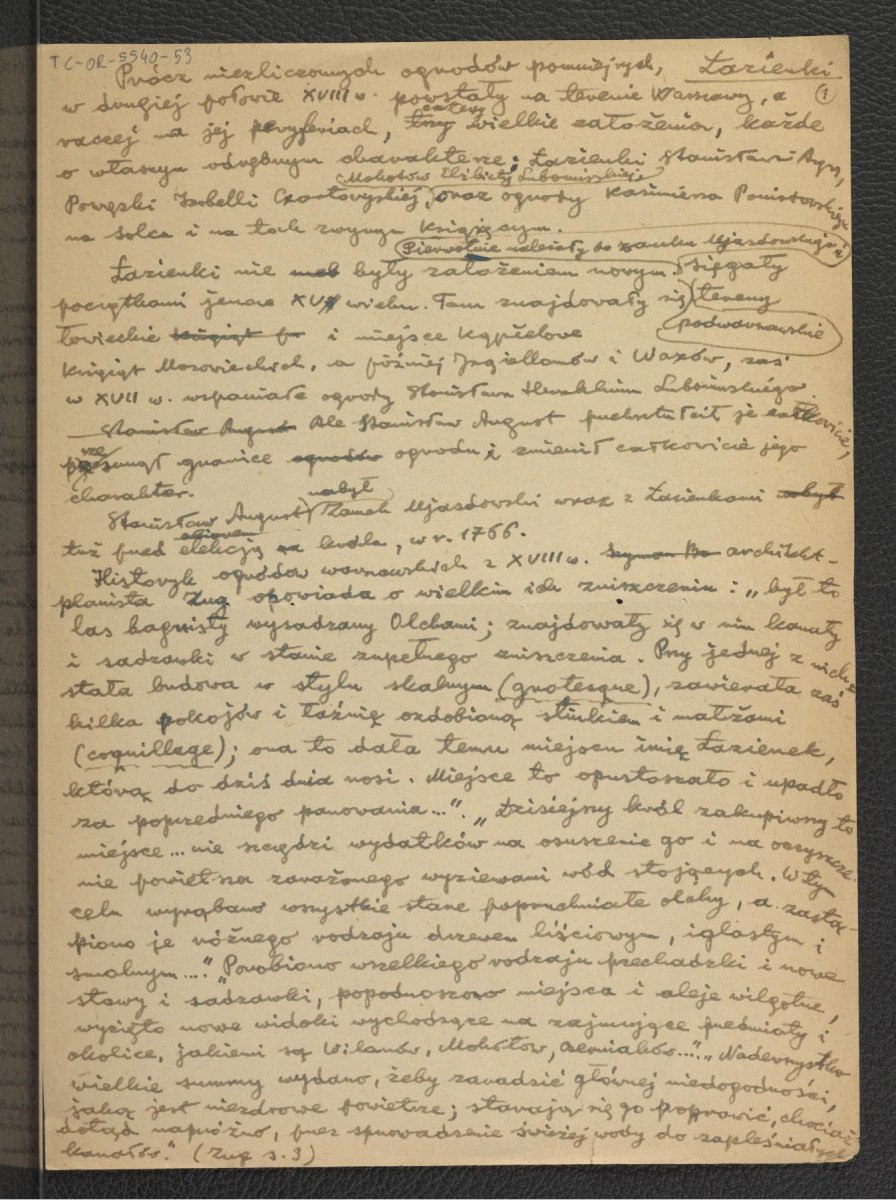 TC-OR-5540-53
Prócz niezliczonych ogrodów pomniejszych, Łazienki
w drugiej połowie XVIII w. powstały na terenie Warszawy, a
①
raczej na jej peryferiach, trzy cztery wielkie założenia, każde
o własnym odrębnym charakterze: Łazienki Stanisława Augusta,
Mokotów Elżbiety Lubomirskiej
Powązki Izabelli Czartoryskiej, oraz ogrody Kazimierza Poniatowskiego
na Solcu i na tak zwanym Książęcym.
Pierwotnie należały do zamku Ujazdowskiego i
Łazienki nie były założeniem nowym. sięgały
początkami jeszcze XV wieku. Tam znajdowały się tereny
podwarszawskie
łowieckie i miejsce kąpielowe
Książąt Mazowieckich, a później Jagiellonów i Wazów, zaś
w XVII w. wspaniałe ogrody Stanisława Herakliusza Lubomirskiego.
Stanisław August Ale Stanisław August przekształcił je całkowicie,
przesunął granice ogrodów ogrodu, i zmienił całkowicie jego
charakter.
nabył
Stanisław August Zamek Ujazdowski wraz z Łazienkami nabył
tuż przed elekcją na króla, w r. 1766.
Historyk ogrodów warszawskich z XVIII w. architekt-
planista Zug opowiada o wielkim ich zniszczeniu: „był to
las bagnisty wysadzany Olchami; znajdowały się w nim kanały
i sadzawki w stanie zupełnego zniszczenia. Przy jednej z nich
stała budowa w stylu skalnym (grotesque), zawierała zaś
kilka pokojów i łaźnię ozdobioną stiukiem i małżami
(coquillage); ona to dała temu miejscu imię Łazienek,
którą do dziś dnia nosi. Miejsce to opustoszało i upadło
za poprzedniego panowania...". „Dzisiejszy król zakupiwszy to
miejsce... nie szczędzi wydatków na osuszenie go i na oczyszcze-
nie powietrza zarażonego wyziewami wód stojących. W tym
celu wyrąbano wszystkie stare popruchniałe olchy, a zastą-
piono je różnego rodzaju drzewem liściowym, iglastym i
smolnym...." „Porobiono wszelkiego rodzaju przechadzki i nowe
stawy i sadzawki, popodnoszono miejsca i aleje wilgotne,
wycięto nowe widoki wychodzące na zajmujące przedmioty i
okolice, jakiemi są Wilanów, Mokotów, Czerniaków...". „Nadewszystko
wielkie summy wydano, żeby zaradzić głównej niedogodności,
jaką jest niezdrowe powietrze; starają się go poprawić, chociaż
dotąd napróżno, przez sprowadzenie świeżej wody do zapleśniałych
kanałów." (Zug s. 3)